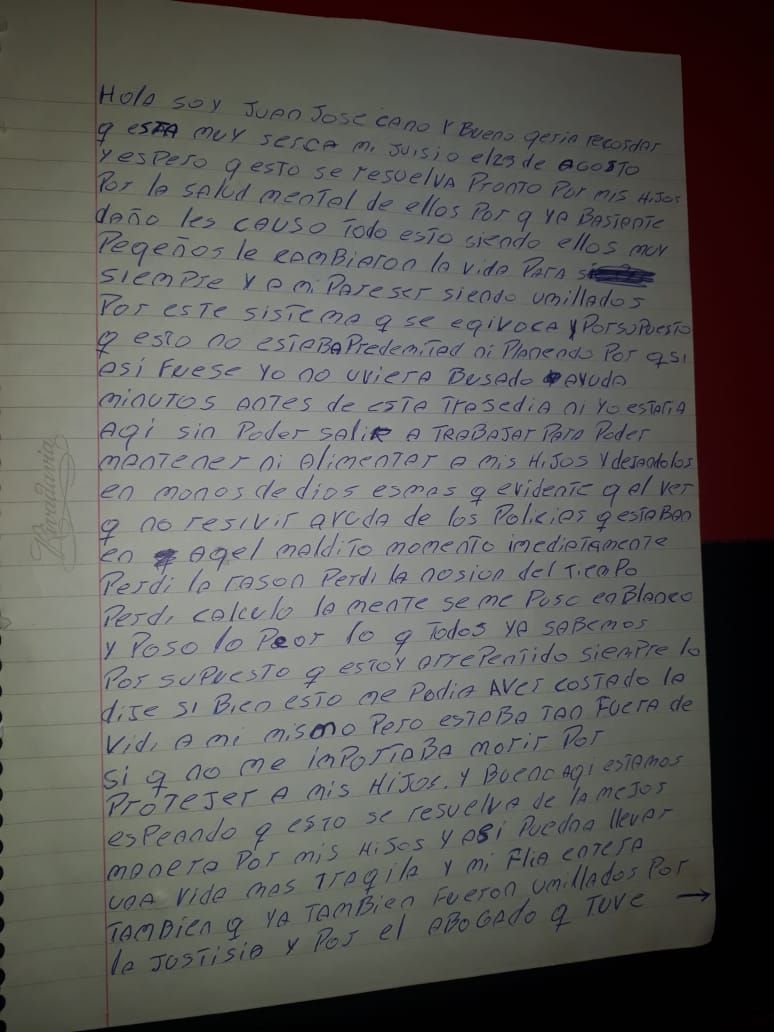 Hola soy Juan Jose cano y Bueno qeria recordar
q esta muy serca mi juisio el 23 de AGOSTO
y espero q esto se resuelva Pronto Por mis Hijos
Por la salud mental de ellos Por q ya Bastante
daño les causo Todo esto siendo ellos muy
Peqeños le cambiaron la vida Para
siempre y a mi Pareser siendo umillados
Por este sistema q se eqivoca y Porsupuesto
q esto no estaba Predemitad ni Planendo Por q si
asi Fuese yo no uviera Busado ayuda
minutos antes de esta Trasedia ni yo estaria
Aqi sin Poder salir a TRABAJAR Para Poder
mantener ni Alimentar a mis Hijos y dejandolos
en manos de dios esmas q evidente q al ver
q no resivir ayuda de los Policias q estaban
en aqel maldito momento imediatamente
Perdi la rason Perdi la nosion del Tiempo
Perdi calculo la mente se me Puso en Blanco
y Poso lo Peor lo q Todos ya sabemos
Por supuesto q estoy arrepentido siempre lo
dije si Bien esto me Podia Aver costado la
vida a mi mismo Pero estaba Tan Fuera de
si q no me importaba morir Por
Protejer a mis Hijos. y Bueno Aqi estamos
espeando q esto se resuelva de la mejor
manera Por mis Hijos y asi Puedan llevar
una vida mas Traqila y mi Flia entera
Tambien q ya Tambien Fueron umillados Por
la Justisia y Por el ABOGADO q Tuve →
Rivadavia